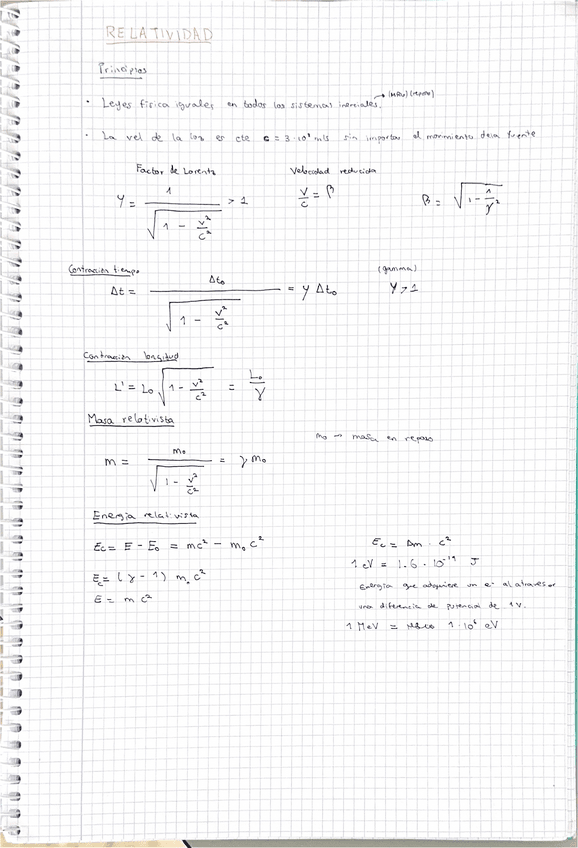 RELATIVIDAD
Principios
→ (MRU) (reposo)
· Leyes física iguales en todos los sistemas inerciales.
· La vel de la luz es cte c = 3·10⁸ m/s sin importar el movimiento de la fuente
Factor de Lorentz Velocidad reducida
γ = 1 / √(1 - v²/c²) > 1 v/c = β β = √(1 - 1/γ²)
Contracción tiempo (gamma)
Δt = Δt₀ / √(1 - v²/c²) = γ Δt₀ γ > 1
Contracción longitud
L' = L₀ √(1 - v²/c²) = L₀/γ
Masa relativista
m₀ → masa en reposo
m = m₀ / √(1 - v²/c²) = γ m₀
Energía relativista
Ec = E - E₀ = mc² - m₀c² Ec = Δm · c²
1 eV = 1.6 · 10⁻¹⁹ J
Ec = (γ - 1) m₀c² Energía que adquiere un e⁻ al atravesar
E = mc² una diferencia de potencial de 1V.
1 MeV = 1·10⁶ eV